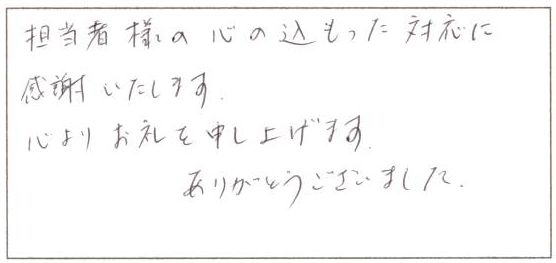 担当者様の心の込もった対応に
感謝いたします.
心よりお礼を申し上げます.
ありがとうございました.